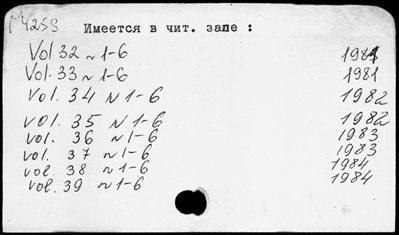 Г4258 Имеется в чит. зале :
Vol 32 N 1-6 1981
Vol. 33 N 1-6 1981
vol. 34 N 1-6 1982
vol. 35 N 1-6 1982
vol. 36 N 1-6 1983
vol. 37 N 1-6 1983
vol. 38 N 1-6 1984
vol. 39 N 1-6 1984